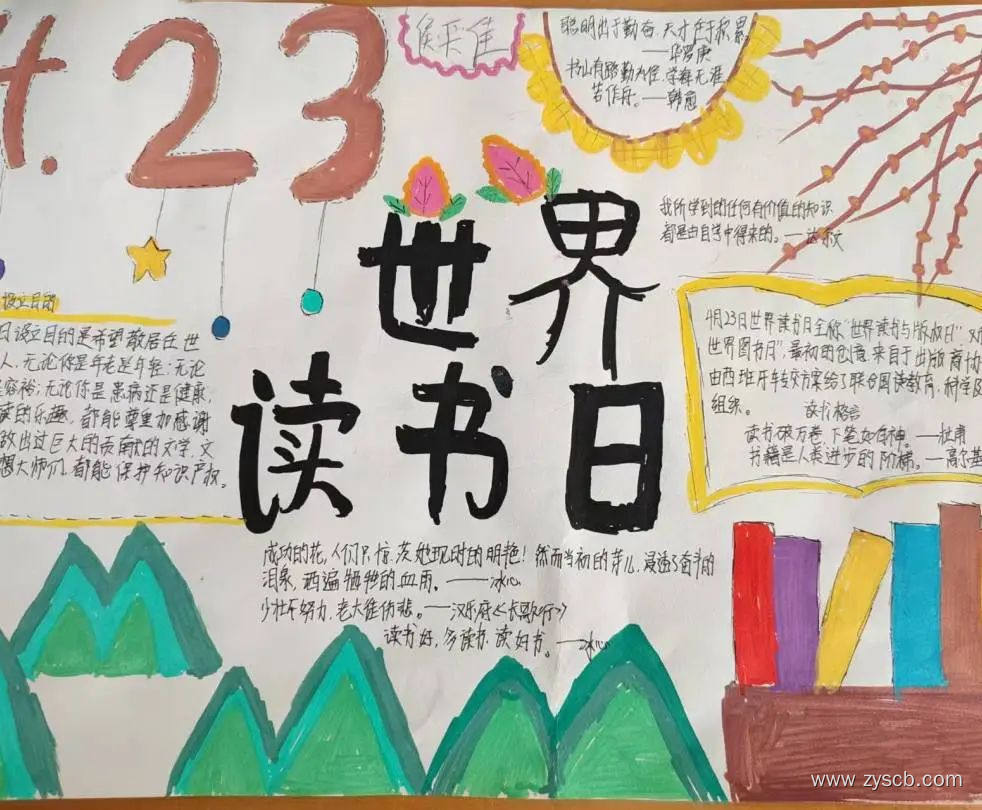 4.23
侯采佳
聪明出于勤奋,天才在于积累。
——华罗庚
书山有路勤为径,学海无涯
苦作舟。——韩愈
我所学到的任何有价值的知识
都是由自学中得来的。——达尔文
世界
读书日
设立目的
日设立目的是希望散居在世
人,无论你是年老是年轻;无论
富裕;无论你是患病还是健康,
读的乐趣,都能尊重和感谢
做出过巨大的贡献的文学、文
想大师们,都能保护知识产权。
4月23日世界读书日全称"世界读书与版权日"又
世界图书月",最初的创意来自于出版商协
由西班牙转交方案给了联合国读教育,科学及
组织。
读书格言
读书破万卷,下笔如有神。——杜甫
书籍是人类进步的阶梯。——高尔基
成功的花,人们只惊羡她现时的明艳!然而当初的芽儿,浸透了奋斗的
泪泉,洒遍牺牲的血雨。——冰心
少壮不努力,老大徒伤悲。——汉乐府《长歌行》
读书好,多读书,读好书。——冰心
www.zyscb.com